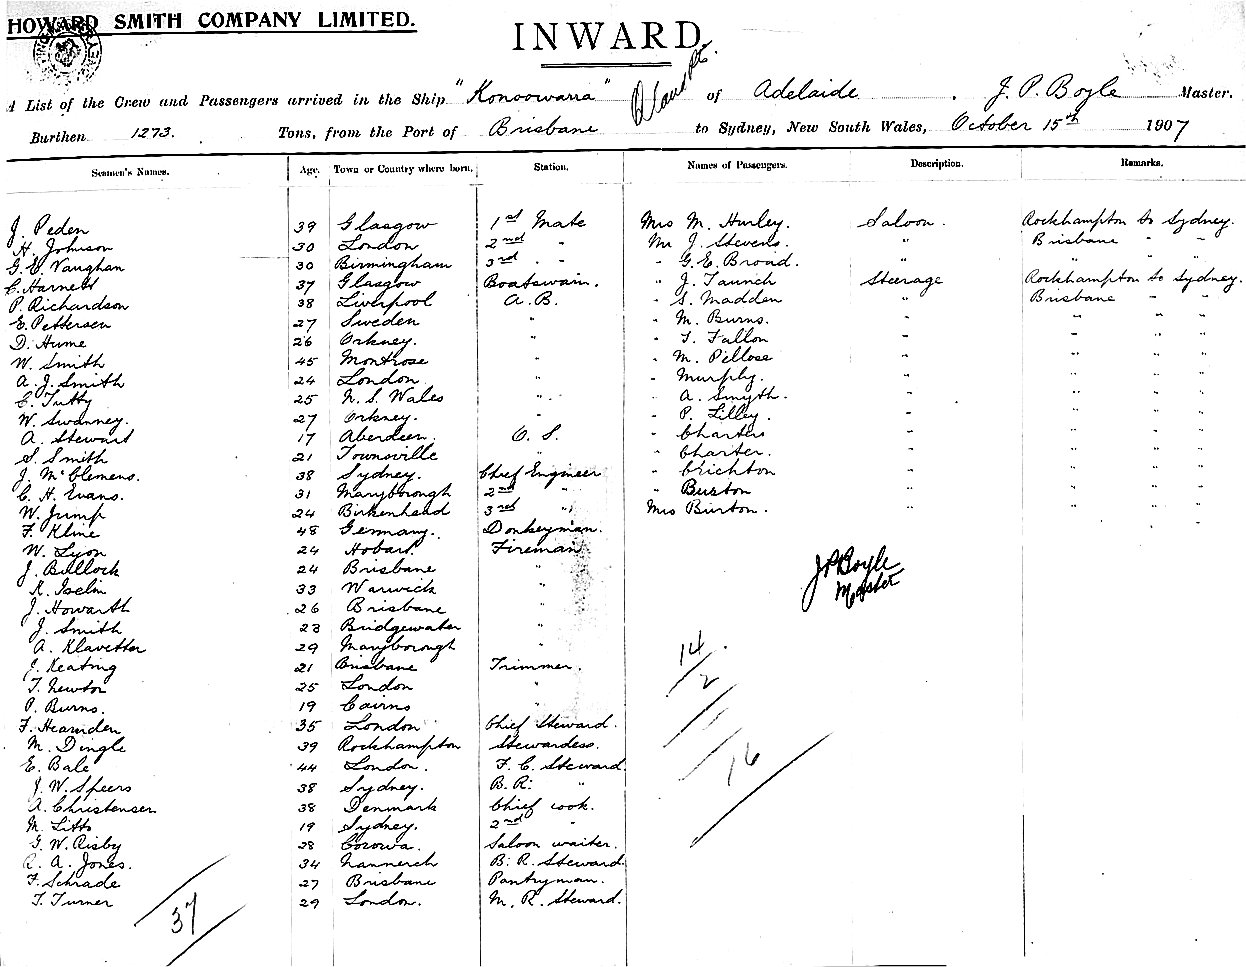 HOWARD SMITH COMPANY LIMITED.
INWARD
A List of the Crew and Passengers arrived in the Ship "Konoowarra" of Adelaide, J. P. Boyle Master.
Burthen 1273. Tons, from the Port of Brisbane to Sydney, New South Wales, October 15th 1907
Seamen's Names. Age. Town or Country where born. Station. Names of Passengers. Description. Remarks.
J. Peden 39 Glasgow 1st Mate Mrs M. Hurley. Saloon. Rockhampton to Sydney.
H. Johnson 30 London 2nd " Mr J. Stevens. " Brisbane " "
G. E. Vaughan 30 Birmingham 3rd " " G. E. Broad. " " " "
C. Harnett 37 Glasgow Boatswain. " J. Taunch Steerage Rockhampton to Sydney.
P. Richardson 38 Liverpool A.B. " S. Madden " Brisbane " "
E. Pettersen 27 Sweden " " M. Burns. " " " "
D. Hume 26 Orkney. " " T. Fallon " " " "
W. Smith 45 Montrose " " M. Pellose " " " "
A. J. Smith 24 London " " Murphy. " " " "
C. Tutty 25 N. S. Wales " " A. Smyth. " " " "
W. Swanney. 27 Orkney. " P. Lilley. " " " "
A. Stewart 17 Aberdeen. O. S. " Charters " " " "
S. Smith 21 Townsville " " Charter. " " " "
J. McClemens. 38 Sydney. Chief Engineer " Crichton " " " "
C. H. Evans. 31 Maryborough 2nd " " Burton " " " "
W. Jump 24 Birkenhead 3rd " Mrs Burton. " " " "
F. Kline 48 Germany. Donkeyman.
W. Lyon 24 Hobart. Fireman
J. Bullock 24 Brisbane "
K. Iselin 33 Warwick "
J. Howarth 26 Brisbane "
J. Smith 23 Bridgewater "
A. Klavetter 29 Maryborough "
J. Keating 21 Brisbane Trimmer.
T. Newton 25 London "
P. Burns. 19 Cairns "
F. Hearnden 35 London Chief Steward.
M. Dingle 39 Rockhampton Stewardess.
E. Bale 44 London. F. C. Steward.
J. W. Speers 38 Sydney. B. R. "
A. Christensen 38 Denmark Chief cook.
M. Litts 19 Sydney. 2nd "
G. W. Risby 28 Corowa. Saloon waiter.
R. A. Jones. 34 Nannerch B. R. Steward.
F. Schrade 27 Brisbane Pantryman.
T. Turner 29 London. M. R. Steward.
J P Boyle
Master
14
2
16
37